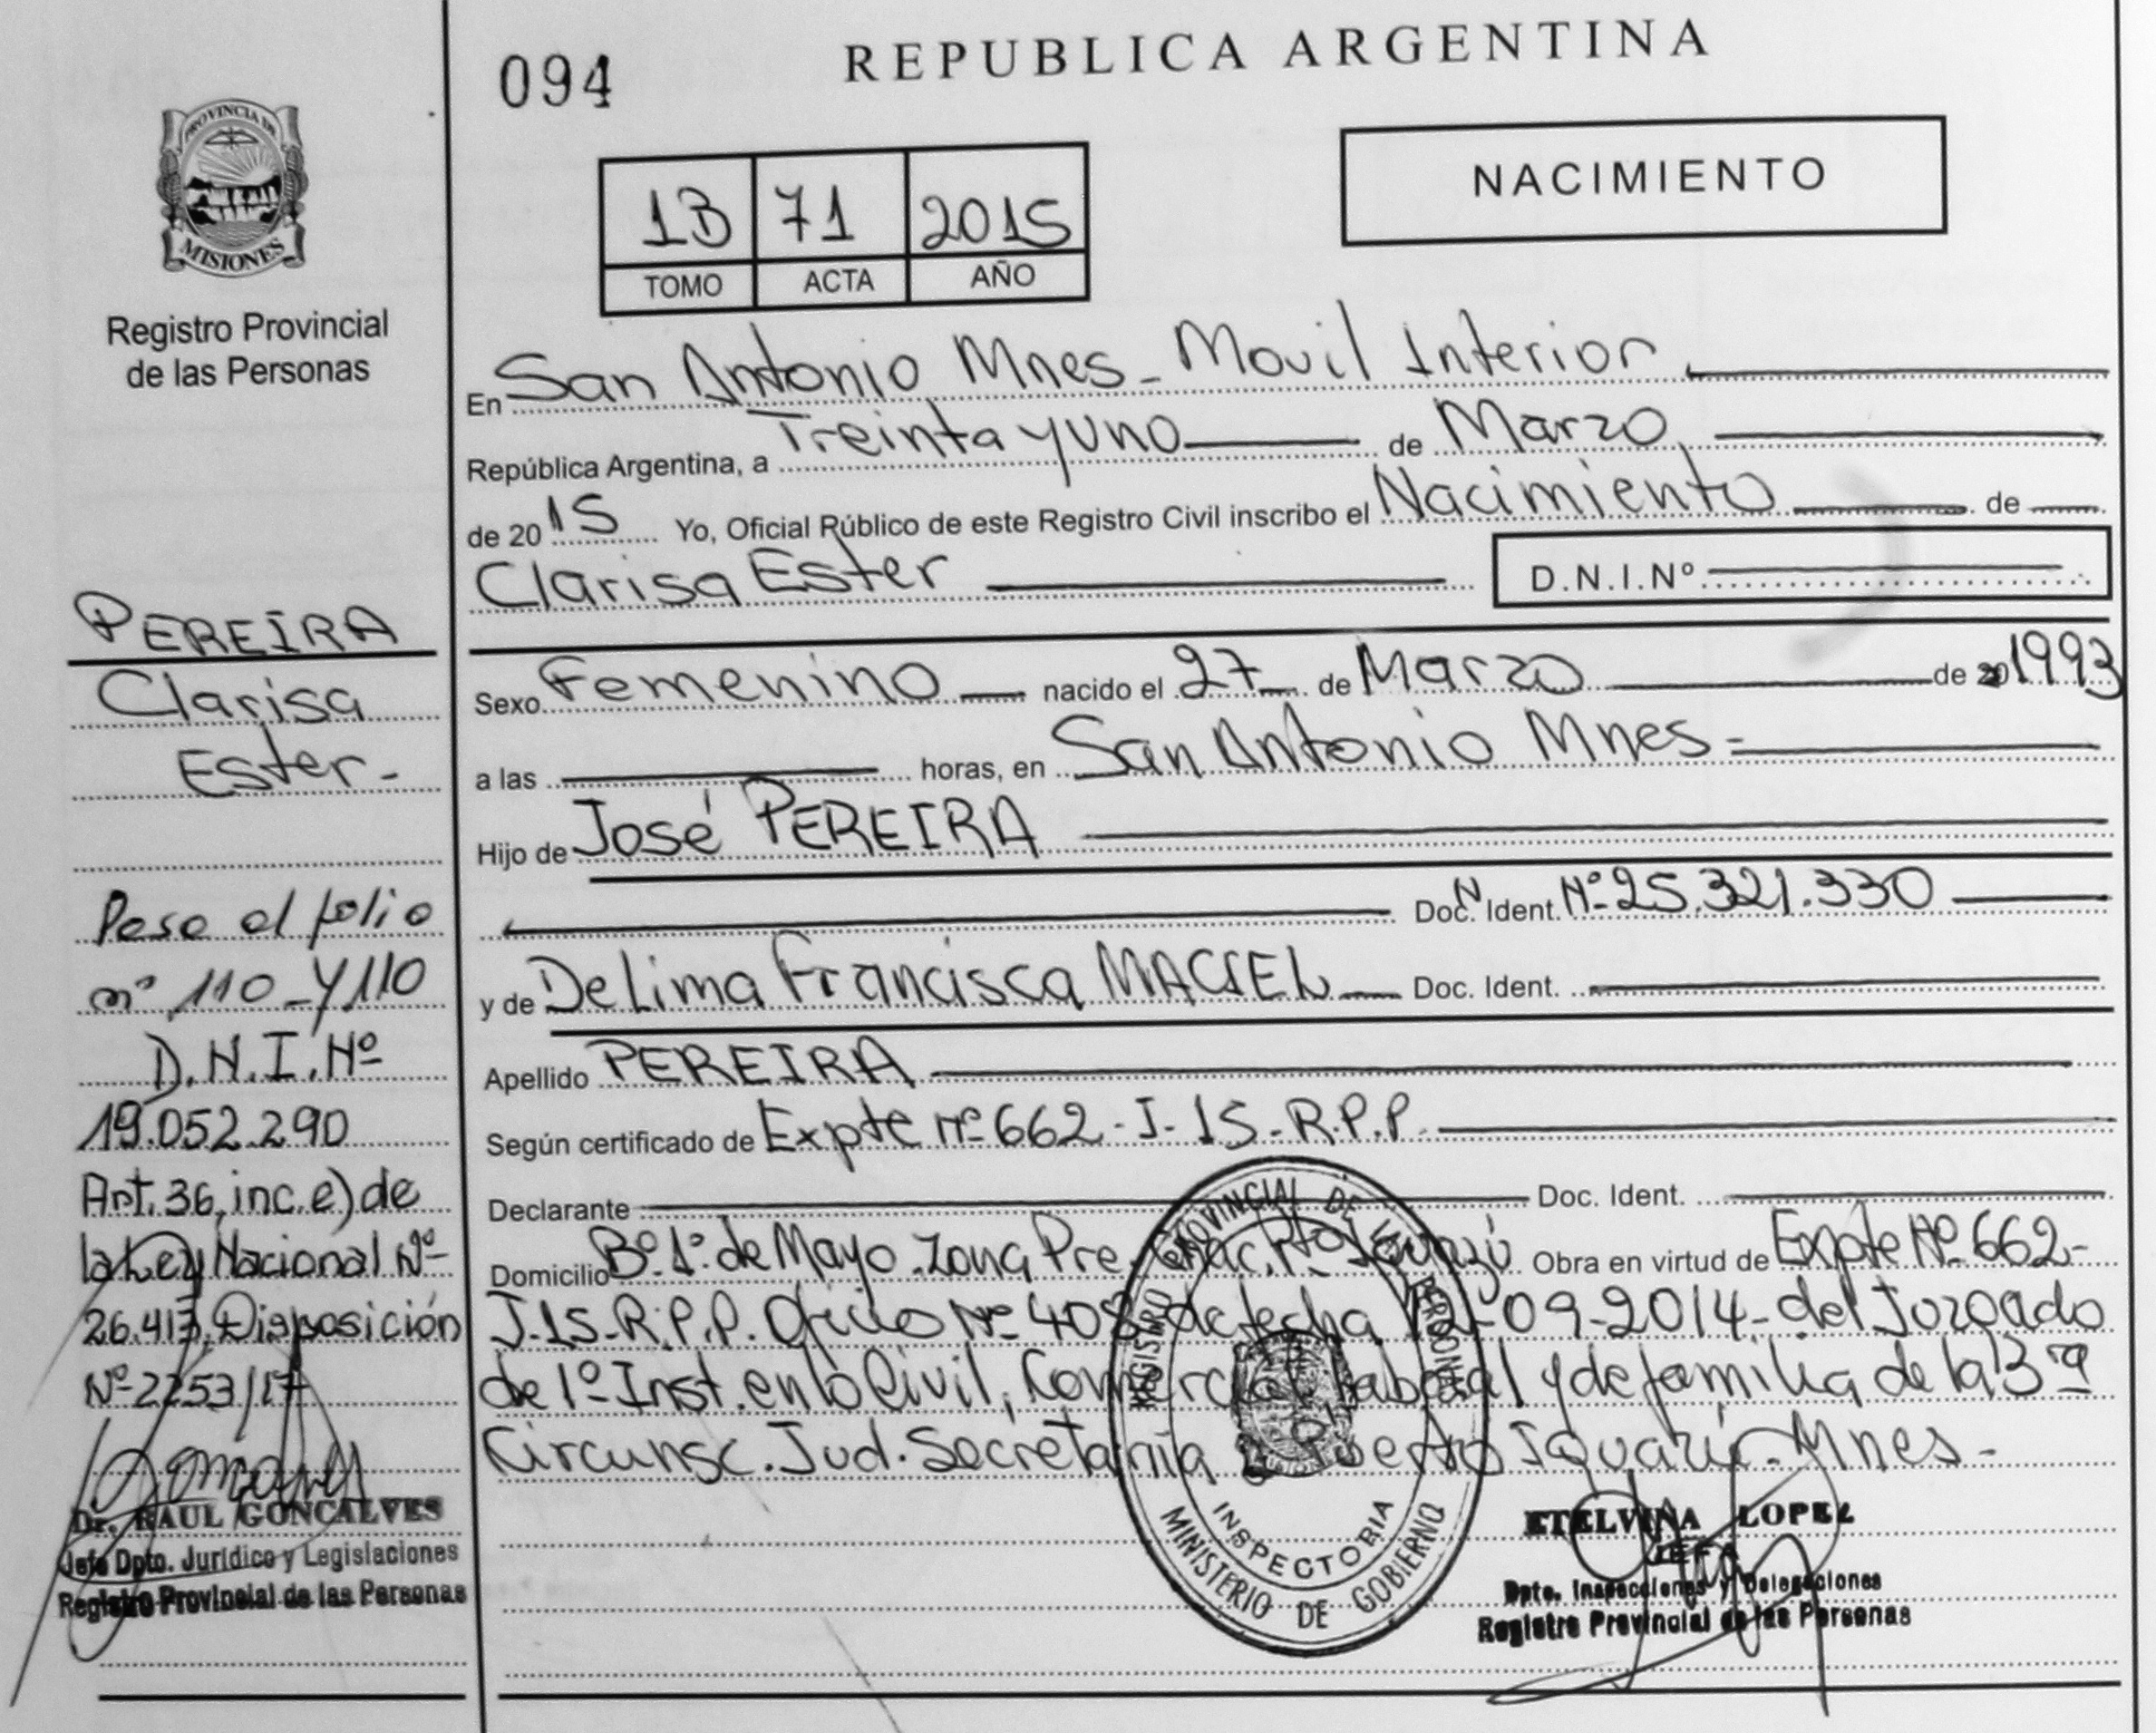 PROVINCIA DE
MISIONES
Registro Provincial
de las Personas
PEREIRA
Clarisa
Ester-
Pase al folio
nº 110 - Y110
D.N.I.Nº
19.052.290
Art.36, inc.e) de
la Ley Nacional Nº
26.413, Disposición
Nº 2253/17
Dr. RAUL GONCALVES
Jefe Dpto. Jurídico y Legislaciones
Registro Provincial de las Personas
094
REPUBLICA ARGENTINA
1B 71 2015
TOMO ACTA AÑO
NACIMIENTO
En San Antonio Mnes - Movil Interior
República Argentina, a Treinta y uno de Marzo
de 20 15 Yo, Oficial Público de este Registro Civil inscribo el Nacimiento de
Clarisa Ester D.N.I.Nº
Sexo Femenino nacido el 27 de Marzo de 1993
a las horas, en San Antonio Mnes-
Hijo de José PEREIRA
Doc. Ident. Nº 25.321.330
y de De Lima Francisca MACIEL Doc. Ident.
Apellido PEREIRA
Según certificado de Expte nº 662 - J - 15 - R.P.P.
Declarante Doc. Ident.
Domicilio Bº 1º de Mayo. Zona Pto Iguazú Obra en virtud de Expte Nº 662-
J-15-R.P.P. Oficio Nº de fecha 09-2014- del Juzgado
de 1º Inst. en lo Civil, Comercial, Laboral y de familia de la 3ra
Circunsc. Jud. Secretaría Puerto Iguazú - Mnes-
REGISTRO PROVINCIAL DE LAS PERSONAS
INSPECTORIA
MINISTERIO DE GOBIERNO
ETELVINA LOPEZ
JEFA
Dpto. Inspecciones y Delegaciones
Registro Provincial de las Personas